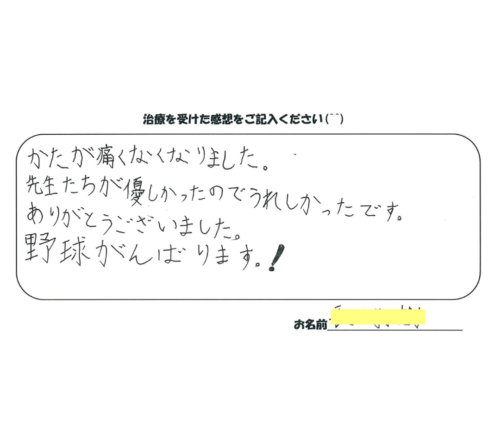 治療を受けた感想をご記入ください(^^)
かたが痛くなくなりました。
先生たちが優しかったのでうれしかったです。
ありがとうございました。
野球がんばります。!
お名前